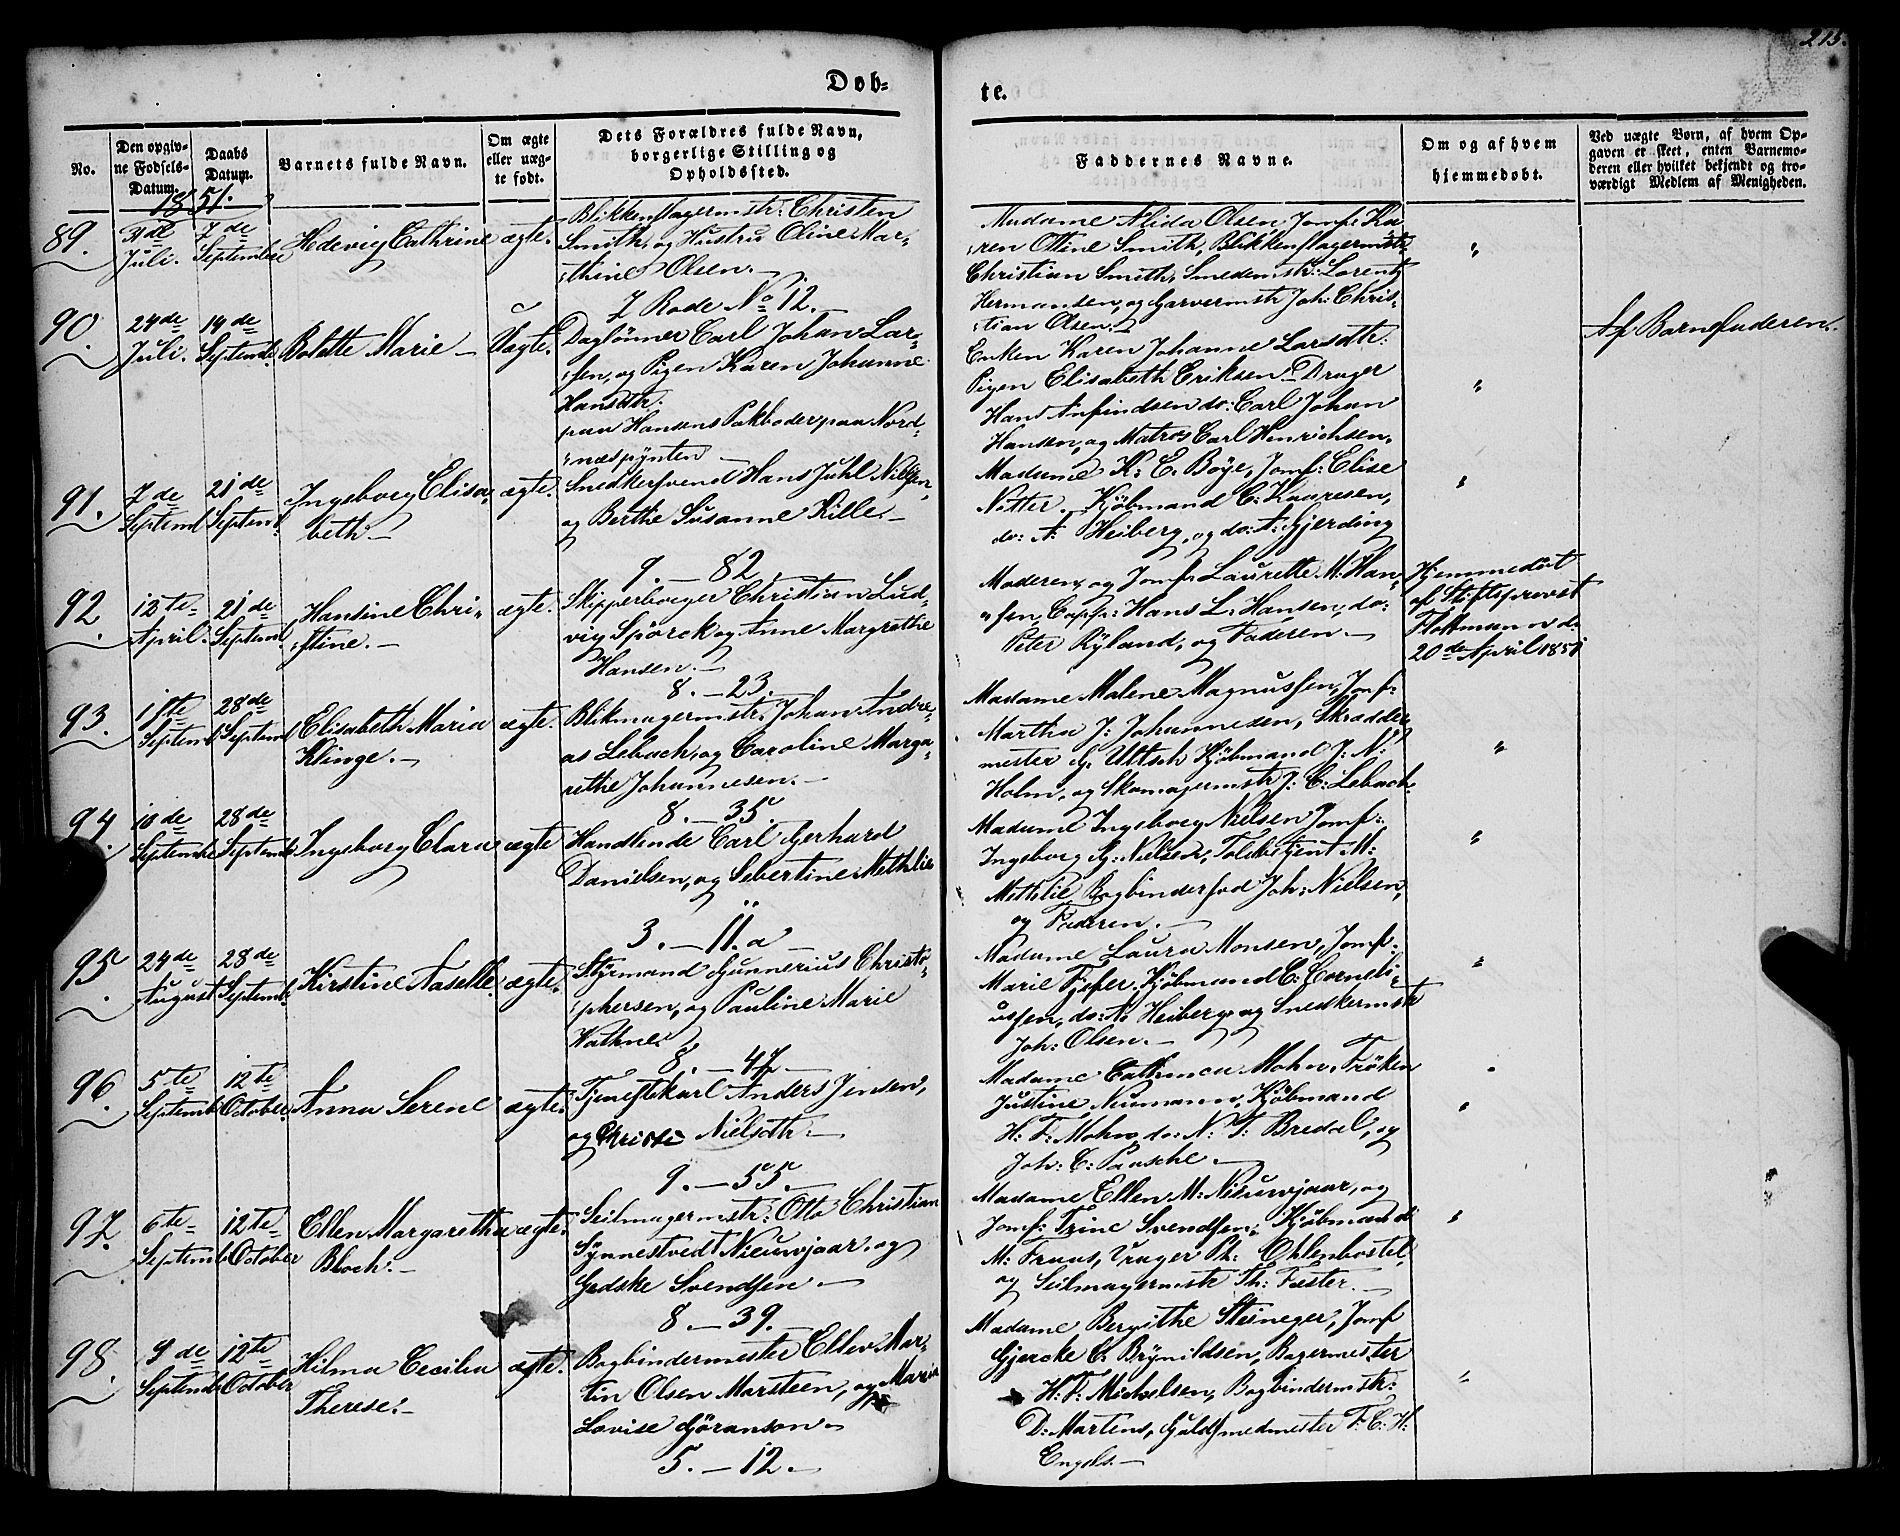 215.
Døb-
te.
No.
Den opgiv-
ne Fødsels-
Datum.
Daabs
Datum.
Barnets fulde Navn.
Om ægte
eller uæg-
te født.
Dets Forældres fulde Navn,
borgerlige Stilling og
Opholdssted.
Faddernes Navne.
Om og af hvem
hjemmedøbt.
Ved uægte Børn, af hvem Op-
gaven er skeet, enten Barnemo-
deren eller hvilket bekjendt og tro-
værdigt Medlem af Menigheden.
1851.
89.
31de
Juli.
7de
Septembr
Hedevig Cathrine
ægte.
Blikkenslagermstr: Christen
Smith, og Hustru Oline Mar-
thine Olsen.
7 Rode No 12.
Madame Alida Olsen, Jomf: Ka-
ren Ottine Smith, Blikkenslagermstr
Christian Smith, Smedemstr: Lorentz
Hermansen, og Garvermstr Joh: Chris-
tian Olsen.
"
90.
24de
Juli.
14de
Septembr.
Bolette Marie
Uægte.
Daglønner Carl Johan Lar-
sen, og Pigen Karen Johanne
Hansdtr.
paa Hansens Pakboder paa Nord-
næspynten
Enken Karen Johanne Larsdtr:
Pigen Elisabeth Eriksen, Drager
Hans Anfindsen do: Carl Johan
Hansen, og Matros Carl Henrichsen.
"
Af Barnefaderen.
91.
7de
Septemb
21de
Septemb.
Ingeborg Elisa-
beth.
ægte.
Snedkersvend Hans Juhl Nilsen,
og Berthe Susanne Kille.
9. — 82.
Madame K: E. Bøye, Jomf: Elise
Nitter. Kjøbmand C: Kaaresen,
do: A: Heiberg, og do: A: Gjerding
"
92.
12te
April.
21de
Septemb.
Hansine Chri-
stine.
ægte.
Skipperborger Christian Lud-
vig Spörck og Anne Margrethe
Hansen.
8. — 23.
Moderen, og Jomfr Laurette M: Han-
sen, Capt: Hans L: Hansen, do:
Peter Ryland, og Faderen.
Hjemmedøbt
af Stiftsprovst
Flottmann d.
20de April 1851
93.
18te
Septemb
28de
Septemb
Elisabeth Maria
Klinge.
ægte.
Blikmagermstr: Johan Andre-
as Lebach, og Caroline Marga-
rethe Johannesen.
8. — 35.
Madame Malene Magnussen, Jomf:
Martha J: Johannesen, Skrædder
mester G. Ultsch Kjøbmand J: N:
Holm, og Skomagermstr J: C: Lebach
"
94.
10de
Septembr
28de
Septemb
Ingeborg Clara
ægte
Handlende Carl Gerhard
Danielsen, og Sebertine Methlie
3. — 11. a
Madame Ingeborg Nielsen Jomf:
Ingeborg G: Nielsen, Toldbetjent M:
Methlie, Bogbindersvd Joh: Nielsen,
og Faderen.
"
95.
24de
August
28de
Septemb.
Kirstine Aaselle.
ægte.
Styrmand Gunnerius Christo-
phersen, og Pauline Marie
Wathne.
8. — 47.
Madame Laura Monsen, Jomf:
Marie Fjeser, Kjøbmand E: Corneli-
ussen, do: A: Heiberg, og Snedkermstr
Joh: Olsen.
"
96.
5te
Septemb
12te
October.
Anna Serene
ægte.
Tjenestekarl Anders Jensen,
og Christi Nielsdtr.
9. — 55.
Madame Cathinca Mohn, Frøken
Justine Neumann, Kjøbmand
H: F: Mohn, do: N: T: Bredal, og
Joh: C: Paasche.
"
97.
6te
Septemb
12te
October
Ellen Margaretha
Bloch.
ægte.
Seilmagermstr: Otto Christian
Synnestvedt Nieuwjaar, og
Gjedske Svendsen
8. — 39.
Madame Ellen M: Nieuwjaar, og
Jomf: Trine Svendsen, Kjøbmand
M: Fraas, Vrager Ph: Ohlenbostel,
og Seilmagermstr Th: Fæster.
"
98.
9de
Septemb
12te
October
Hilma Cecilia
Therese.
ægte.
Bogbindermester Ellev Mar-
tin Olsen Marsteen, og Maria
Lovise Göranson.
5. — 12.
Madame Bergithe Steineger, Jomf
Gjercke C. Brynildsen, Bagermester
H: F: Michelsen, Bogbindermstr:
D: Martens, Guldsmedmester F: C: H:
Engels.
"